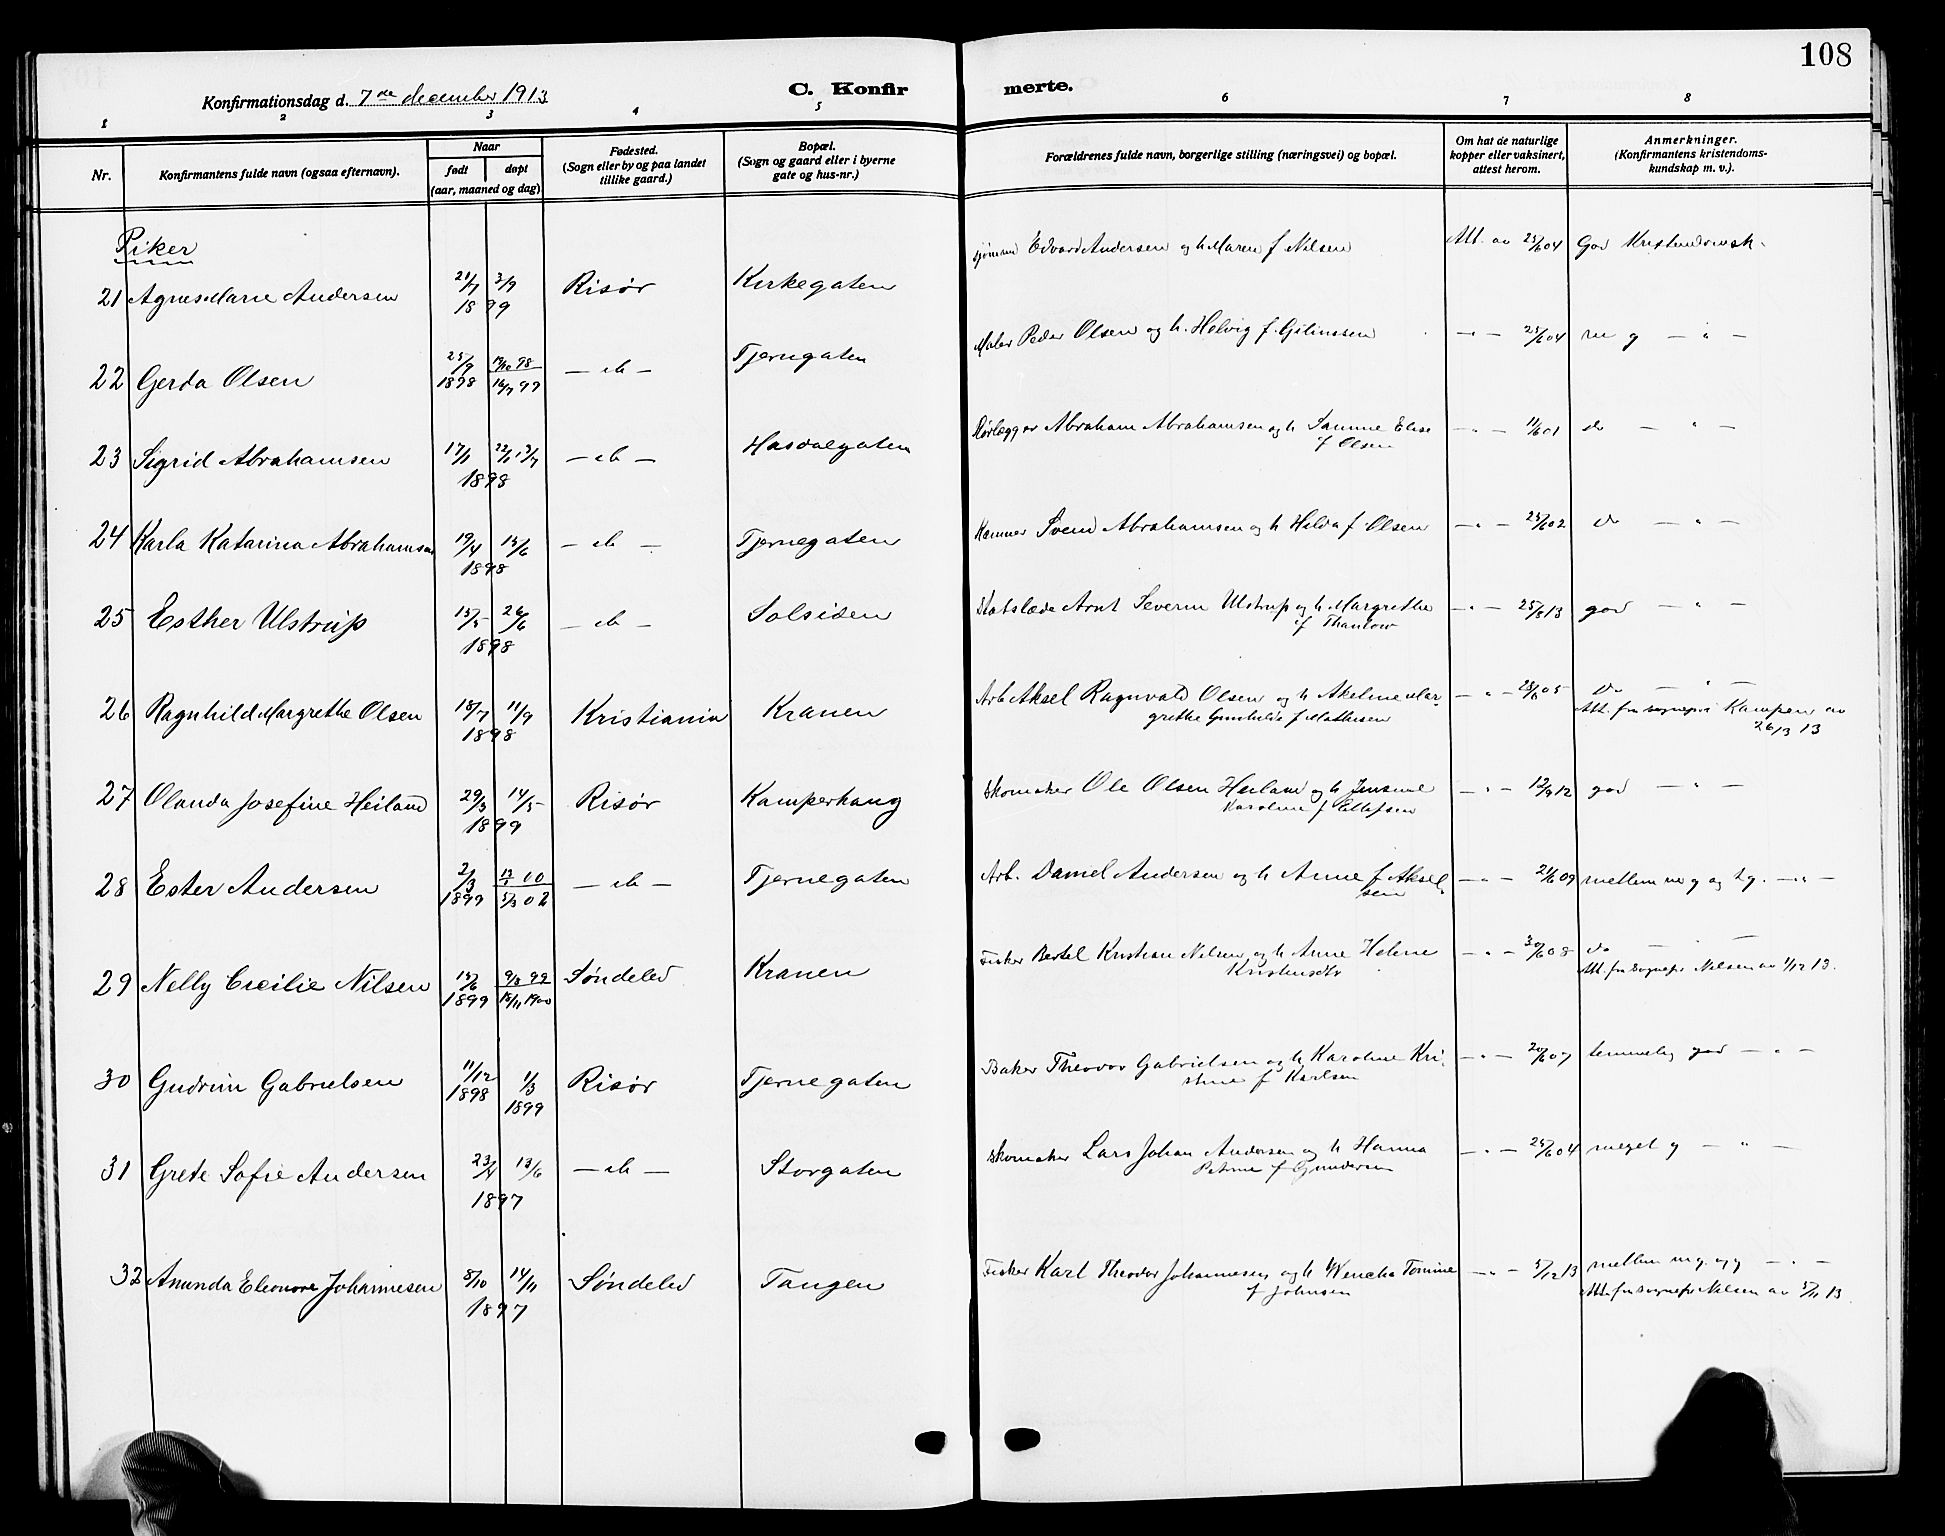 108
Konfirmationsdag d. 7de december 1913
C. Konfirmerte.
1 2 3 4 5 6 7 8
Nr.
Konfirmantens fulde navn (ogsaa efternavn).
Naar
født døpt
(aar, maaned og dag)
Fødested.
(Sogn eller by og paa landet
tillike gaard.)
Bopæl.
(Sogn og gaard eller i byerne
gate og hus-nr.)
Forældrenes fulde navn, borgerlige stilling (næringsvei) og bopæl.
Om hat de naturlige
kopper eller vaksinert,
attest herom.
Anmerkninger.
(Konfirmantens kristendoms-
kundskap m. v.).
Piker
21 Agnes Marie Andersen 21/7 3/9 1899 Risør Kirkegaten Edvard Andersen og h. Maren f. Nilsen Att. av 25/6 04 God Kristendomsk.
22 Gerda Olsen 25/9 1898 19/10 98 16/7 99 — do — Tjernegaten Maler Peder Olsen og h. Helvig f. — " — 25/6 04 m g — " —
23 Sigrid Abrahamsen 17/1 1898 — do — Hasdalgaten Rørlægger Abraham Abrahamsen og h. Elise
f Olsen — " — 11/6 01 do — " —
24 Karla Katarina Abrahamsen 19/4 15/6 1898 — do — Tjernegaten Svend Abrahamsen og h Hilda f. Olsen — " — 25/6 02 do — " —
25 Esther Ulstrup 15/5 26/6 1898 — do — Solsiden Arnt Severin Ulstrup og h Margrethe
f Thaulow — " — 25/8 13 god — " —
26 Ragnhild Margrethe Olsen 18/7 11/9 1898 Kristiania Kranen Arb Aksel Ragnvald Olsen og h Mar-
grethe Gunhilda f Mathisen — " — 28/6 05 do — " —
Att. fra sognepr i Kampen av
26/3 13
27 Olanda Josefine Heiland 29/3 14/5 1899 Risør Kamperhaug Skomaker Ole Olsen Heiland og h Jensine
Karoline f Ellefsen — " — 12/9 12 god — " —
28 Ester Andersen 2/3 1899 — do — Tjernegaten Arb. Daniel Andersen og h Anne f Aksel-
sen — " — 21/6 09 mellem m g og g. — " —
29 Nelly Cecilie Nilsen 15/6 1899 9/8 99 18/11 1900 Søndeled Kranen Fisker Bertel Kristian Nilsen og h Anne Helene
Kristensdtr — " — 30/6 08 do — " —
Att. fra sognepr Nilsen av 1/12 13.
30 Gudrun Gabrielsen 11/12 1898 1/3 1899 Risør Tjernegaten Baker Theodor Gabrielsen og h Karoline Kri-
stine f Karlsen — " — 20/6 07 temmelig god — " —
31 Grete Sofie Andersen 23/4 13/6 1897 — do — Storgaten Skomaker Lars Johan Andersen og h Hanna
Petrine f Gundersen — " — 25/6 04 meget g — " —
32 Amunda Eleonore Johannesen 8/10 14/11 1897 Søndeled Tangen Fisker Karl Theodor Johannesen og h Wencha Tomine
f Johnsen — " — 5/12 13 mellem m g og g — " —
Att. fra sognepr Nilsen av 5/11 13.